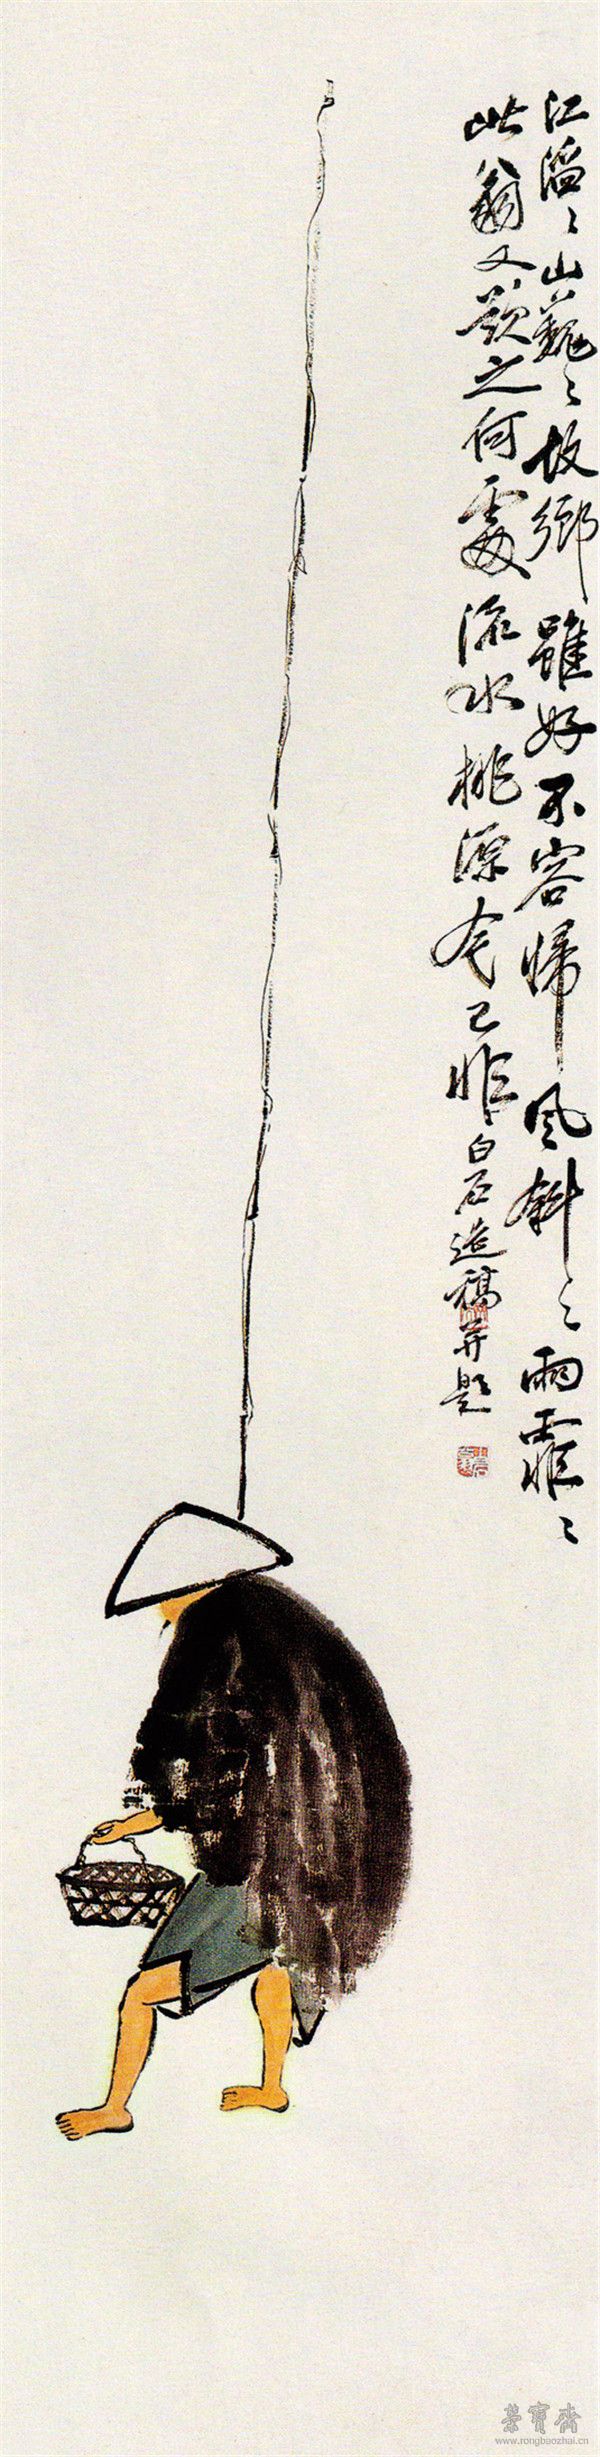 江滔〻山巍〻故鄉雖好不容歸風斜〻雨霏〻
此翁又欲之何處流水桃源今已非白石造稿并題
榮寶齋
www.rongbaozhai.cn